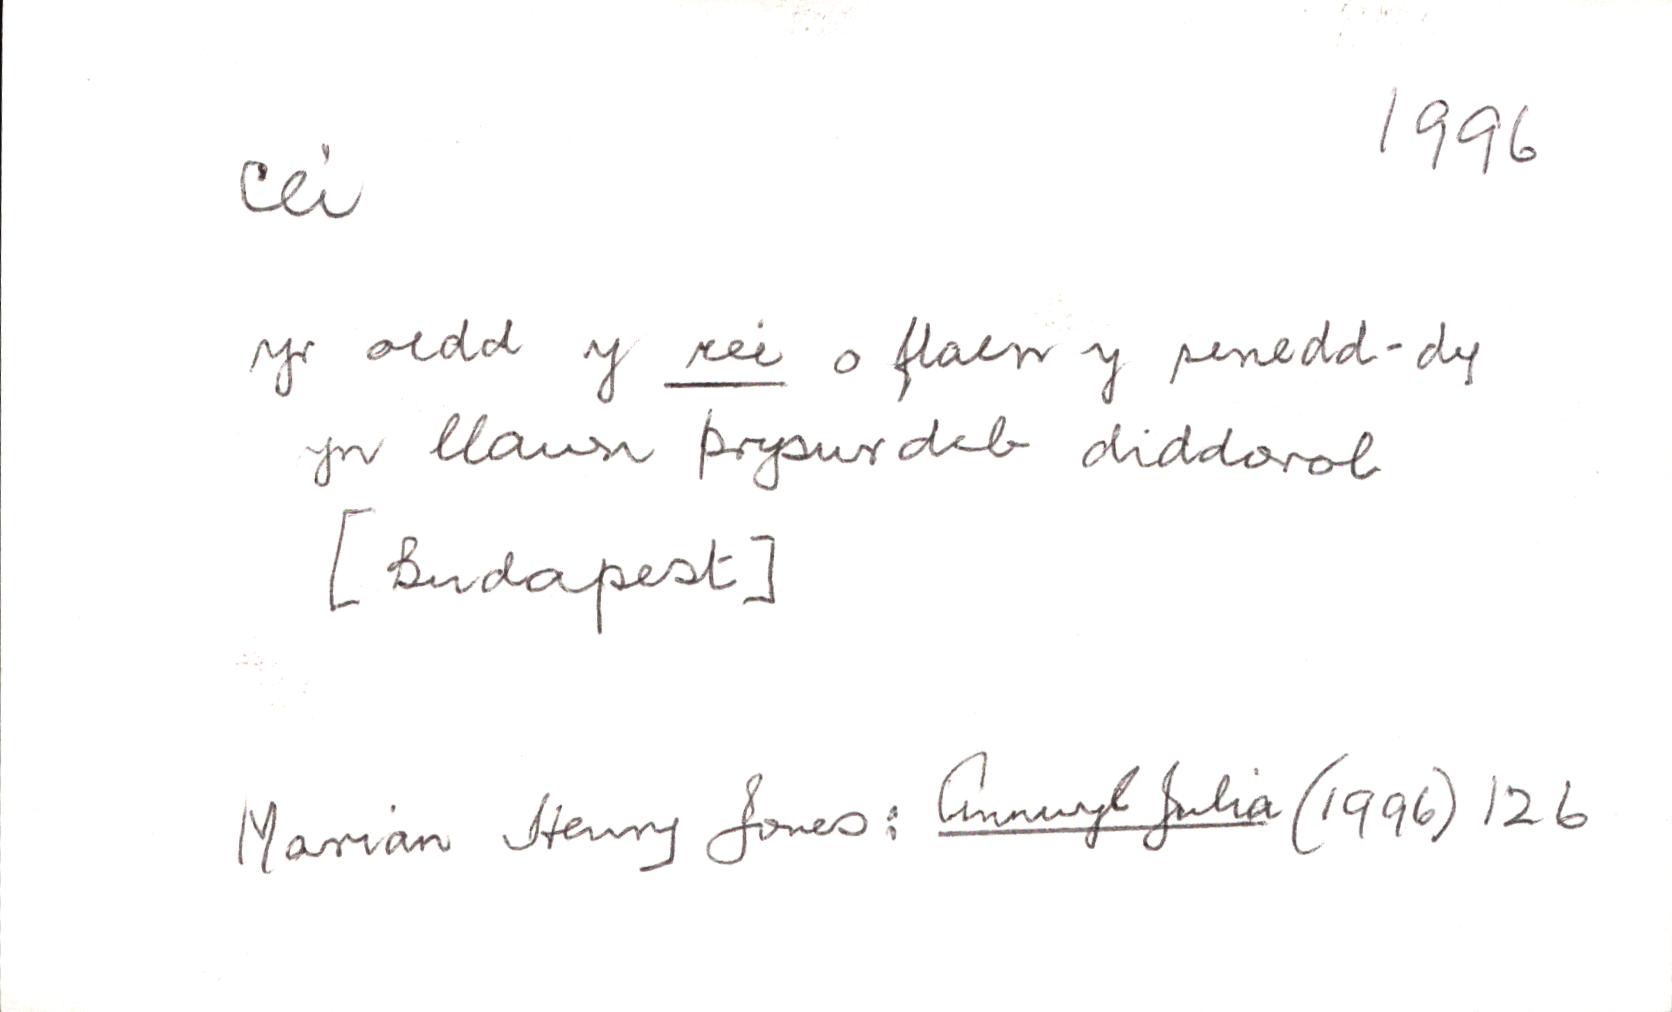 1996
cei
yr oedd y cei o flaen y senedd-dy
yn llawn prysurdeb diddorol
[Budapest]
Marian Henry Jones: Annwyl Julia (1996) 126